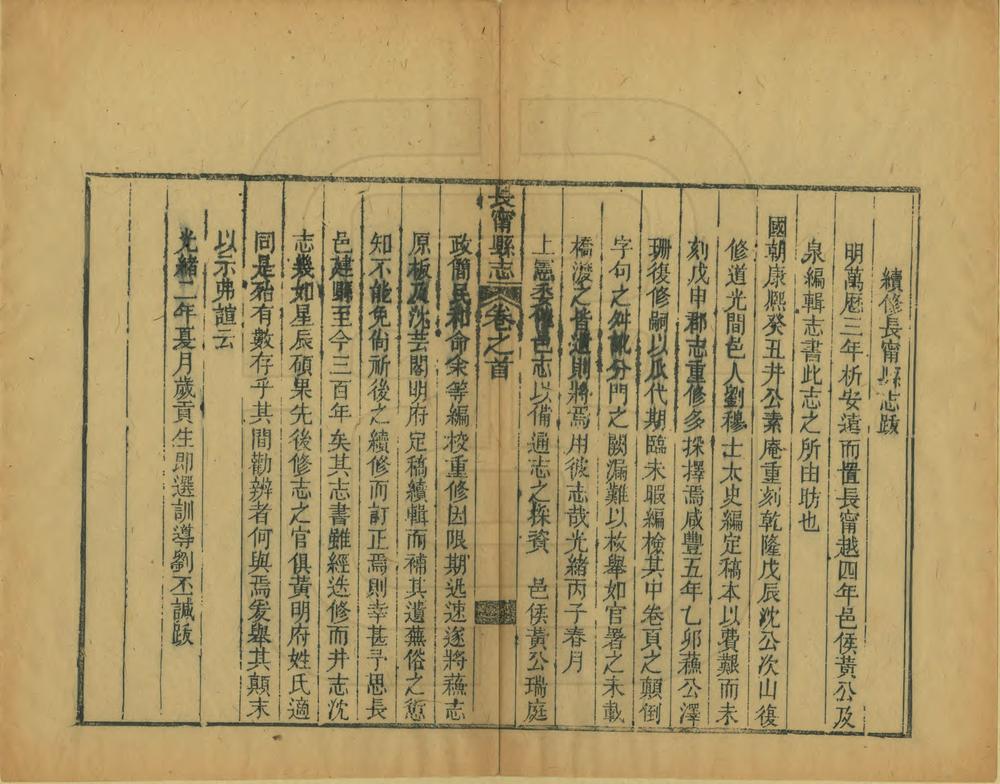 續修長甯縣志跋
明萬曆三年析安遠而置長甯越四年邑侯黃公及
泉編輯志書此志之所由昉也
國朝康熙癸丑井公素庵重刻乾隆戊辰沈公次山復
修道光間邑人劉穆士太史編定稿本以費艱而未
刻戊申郡志重修多採擇焉咸豐五年乙卯蘓公澤
珊復修嗣以瓜代期臨未暇編檢其中卷頁之顛倒
字句之舛訛分門之闕漏難以枚舉如官署之未載
橋渡之皆遺則將焉用彼志哉光緒丙子春月
上憲委修邑志以備通志之採資 邑侯黃公瑞庭
長甯縣志 卷之首
政簡民和命余等編校重修因限期迅速遂將蘓志
原板及沈芸閣明府定稿續輯而補其遺蕪俗之愆
知不能免尚祈後之續修而訂正焉則幸甚予思長
邑建縣至今三百年矣其志書雖經迭修而井志沈
志幾如星辰碩果先後修志之官俱黃明府姓氏適
同是殆有數存乎其間勸辨者何與焉爰舉其顛末
以示弗諠云
光緒二年夏月歲貢生即選訓導劉丕諴跋